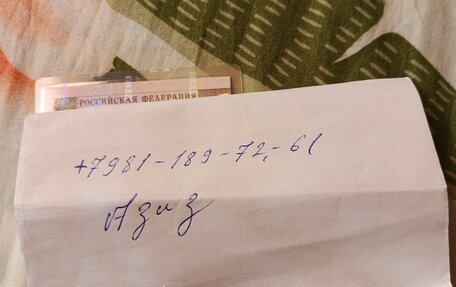 РОССИЙСКАЯ ФЕДЕРАЦИЯ
+7981-189-72,-61
Азиз